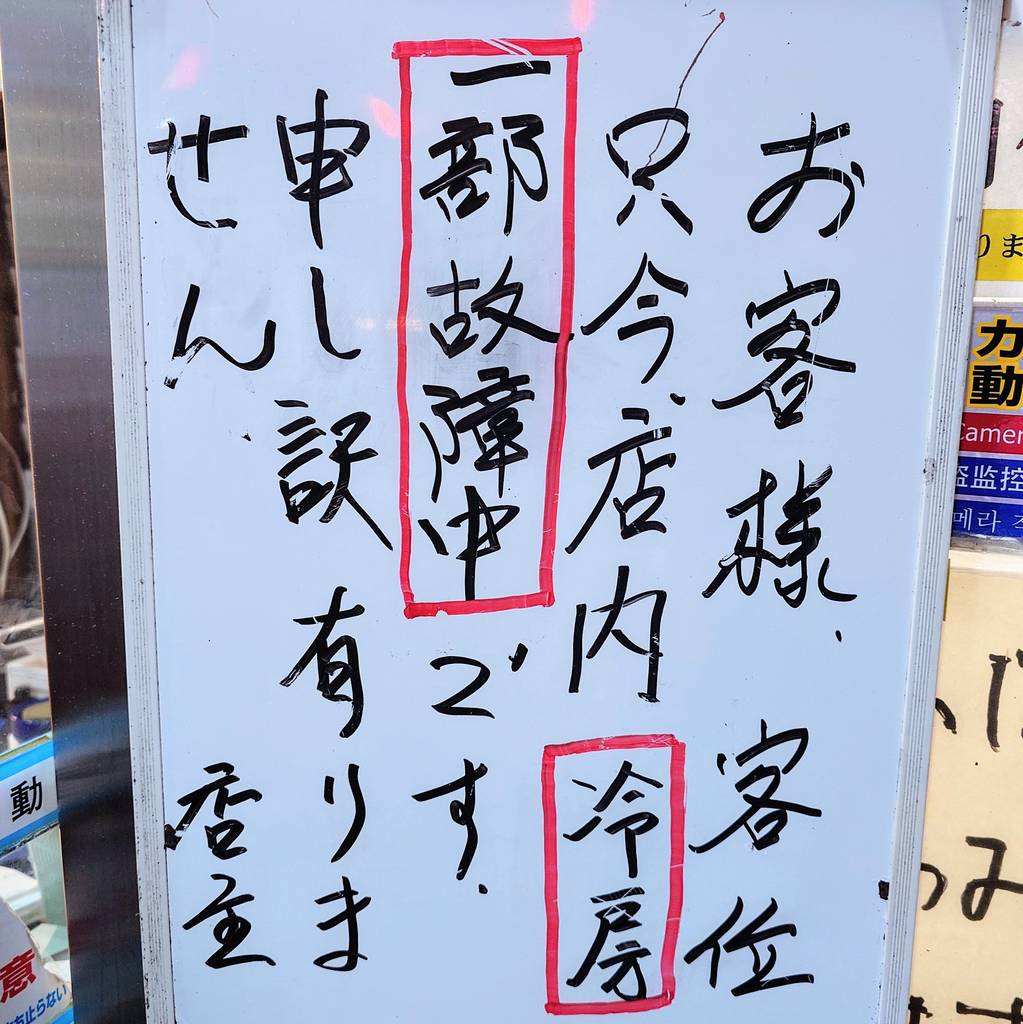 お客様、客位
只今、店内冷房
一部故障中です、
申し訳有りま
せん、店主
りま
カ
動
Camer
盗监控
메라
動
意
ち止らない